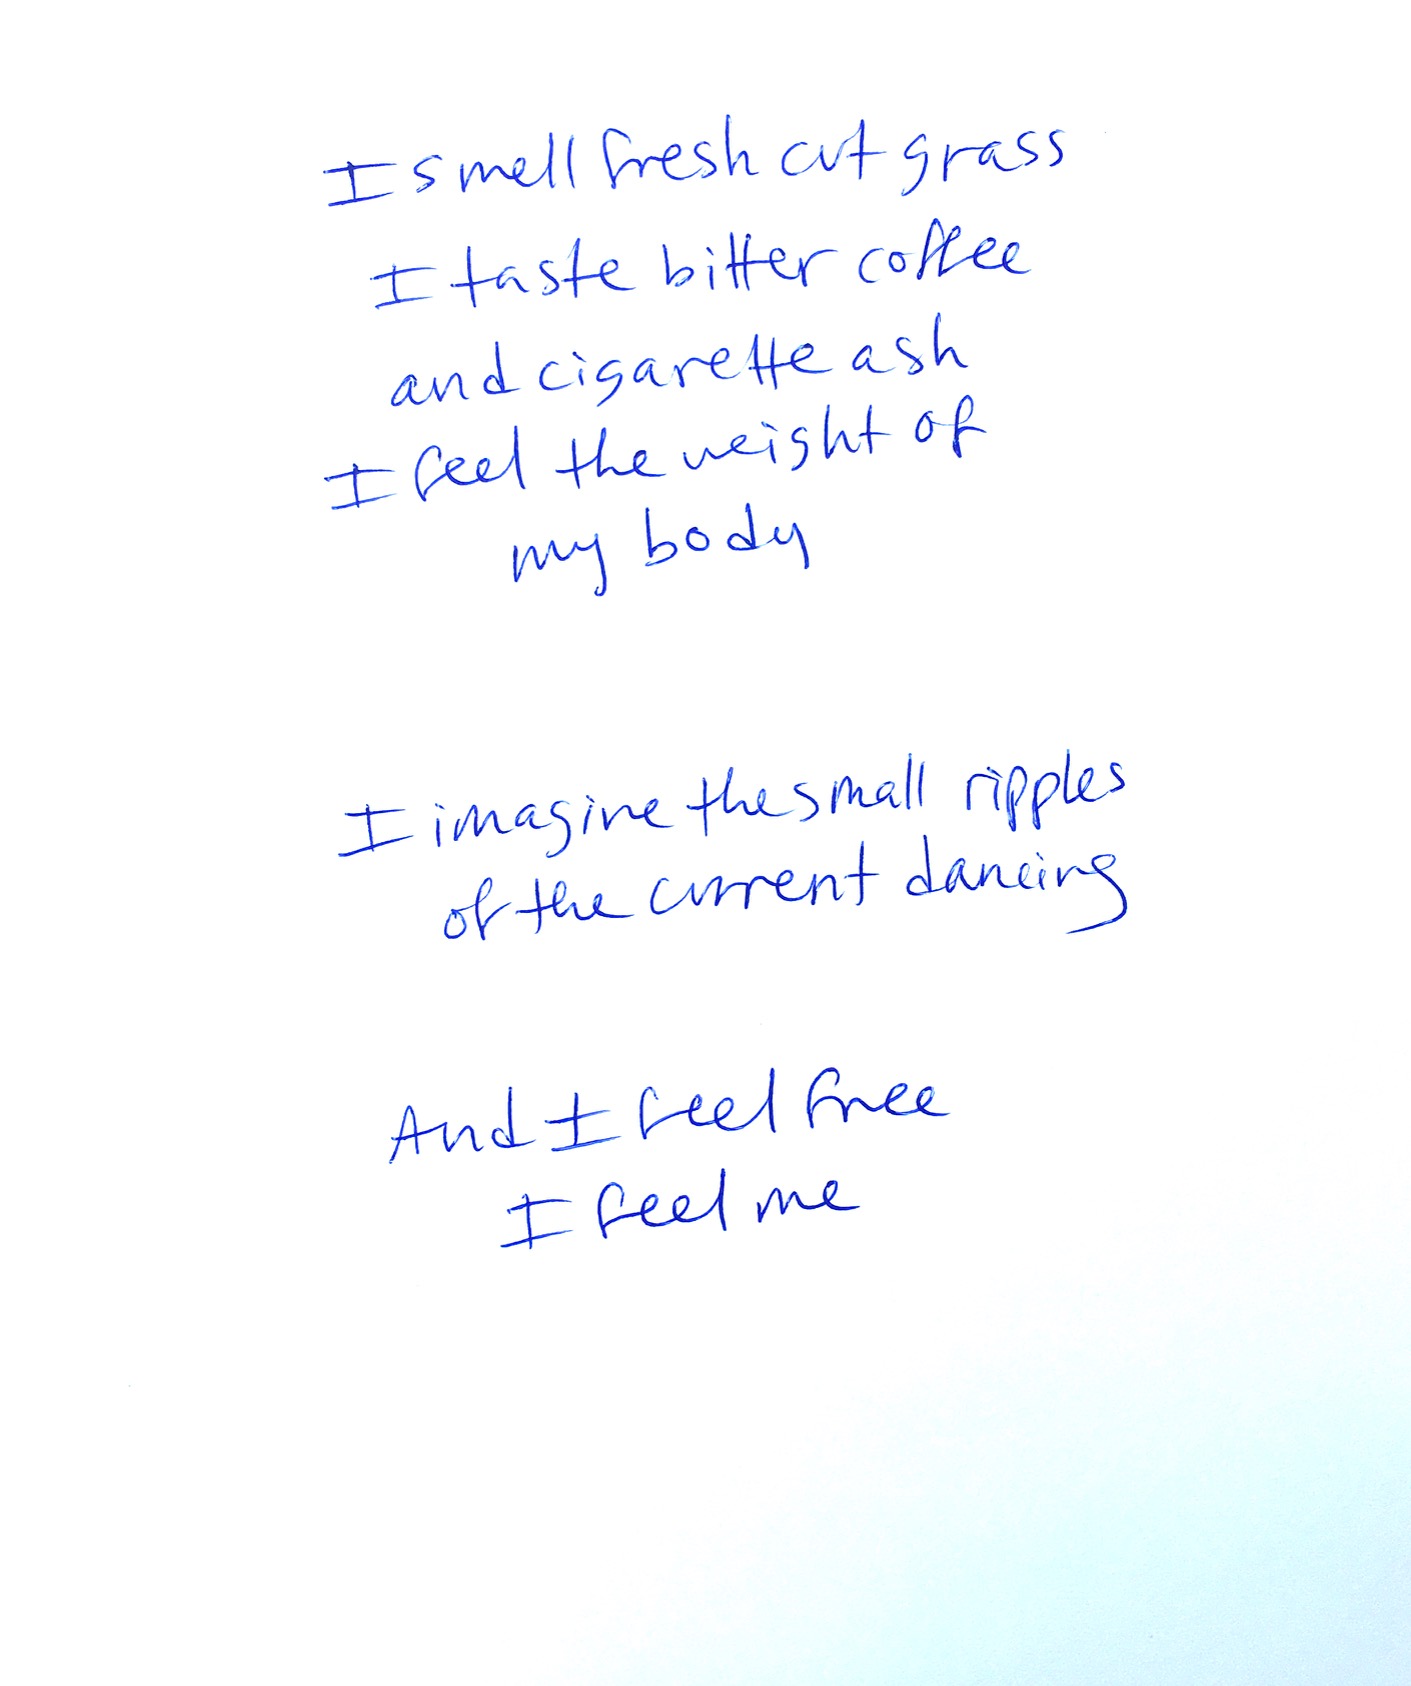 I smell fresh cut grass
I taste bitter coffee
and cigarette ash
I feel the weight of
my body
I imagine the small ripples
of the current dancing
And I feel free
I feel me